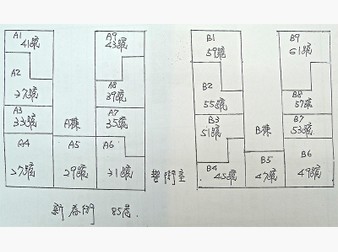 A1
41號
A9
43號
A2
37號
A8
39號
A3
33號
A棟
A7
35號
A4
27號
A5
29號
A6
31號
B1
59號
B9
61號
B2
55號
B8
57號
B3
51號
B棟
B7
53號
B4
45號
B5
47號
B6
49號
85巷